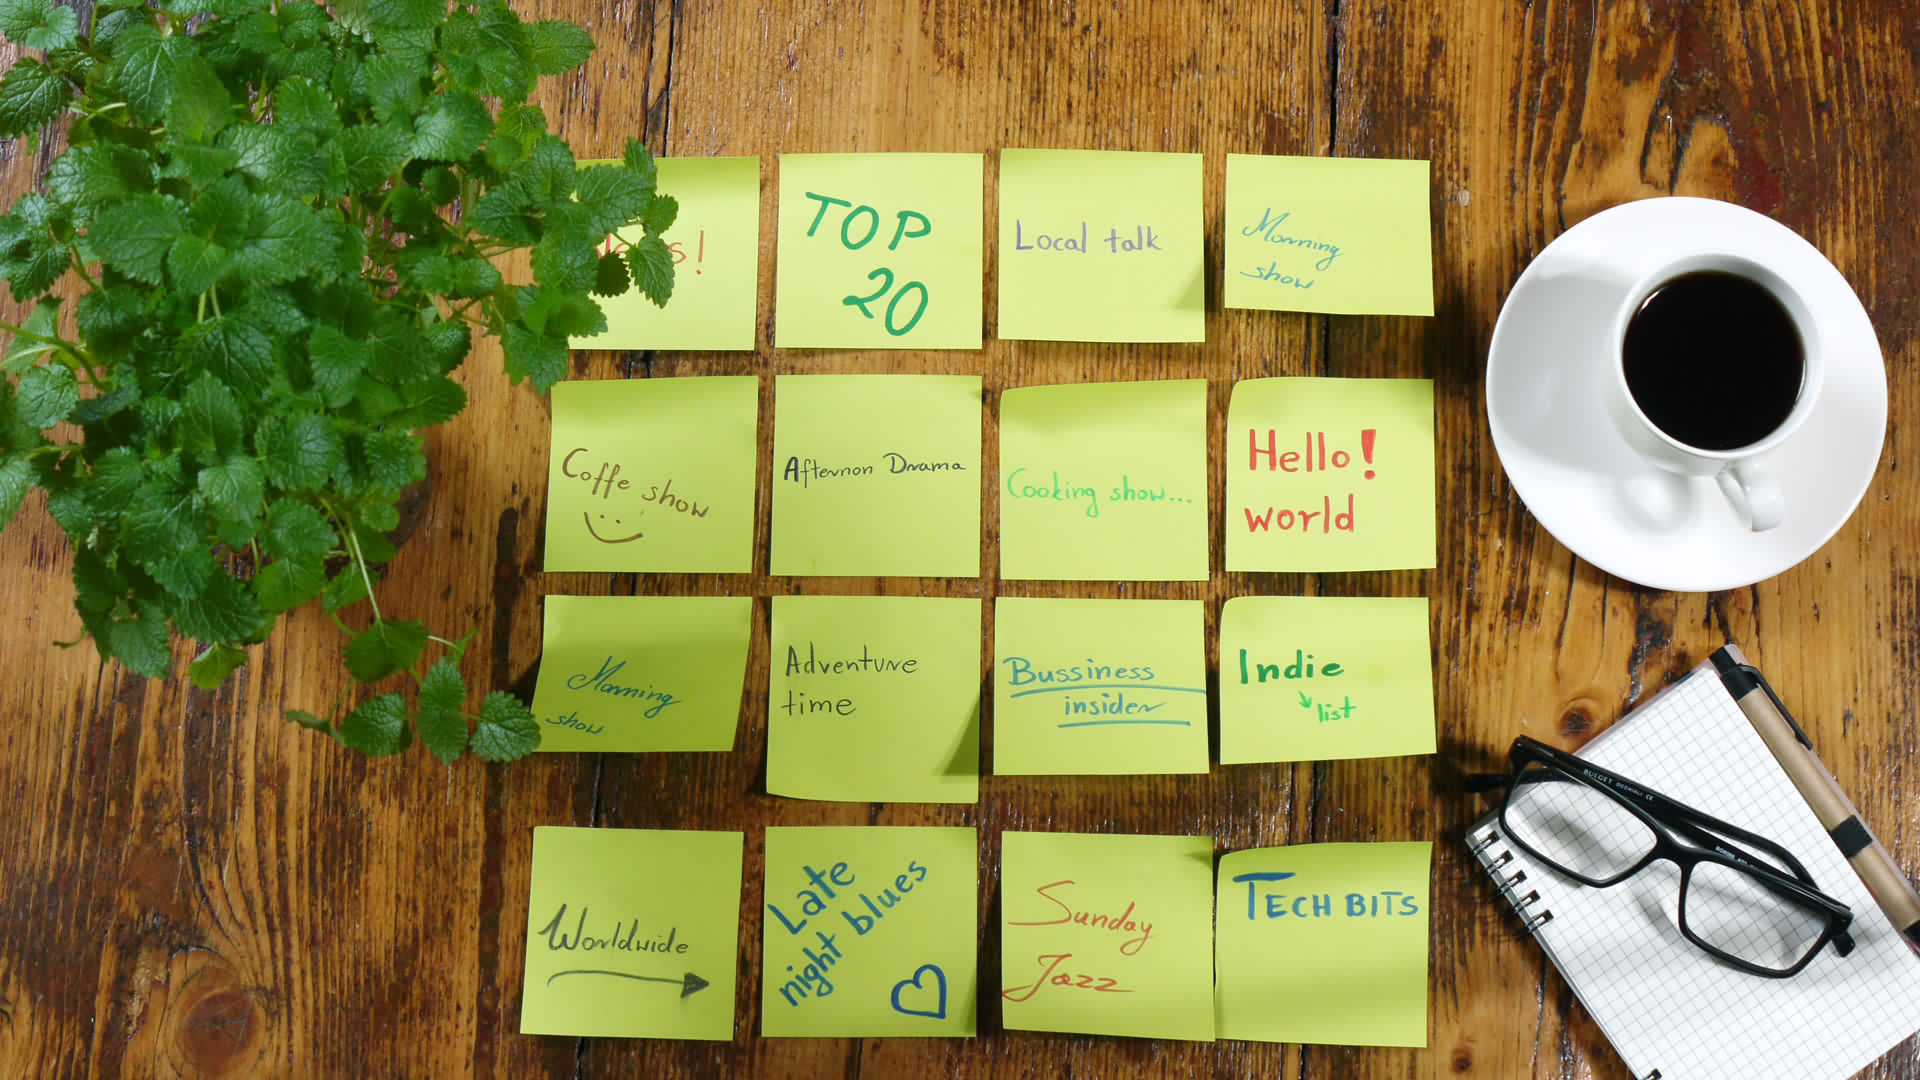 TOP
20
Local talk
Morning
show
Coffe show
Afternon Drama
Cooking show...
Hello!
world
Morning
show
Adventure
time
Bussiness
insider
Indie
list
Worldwide
Late
night blues
Sunday
Jazz
TECH BITS